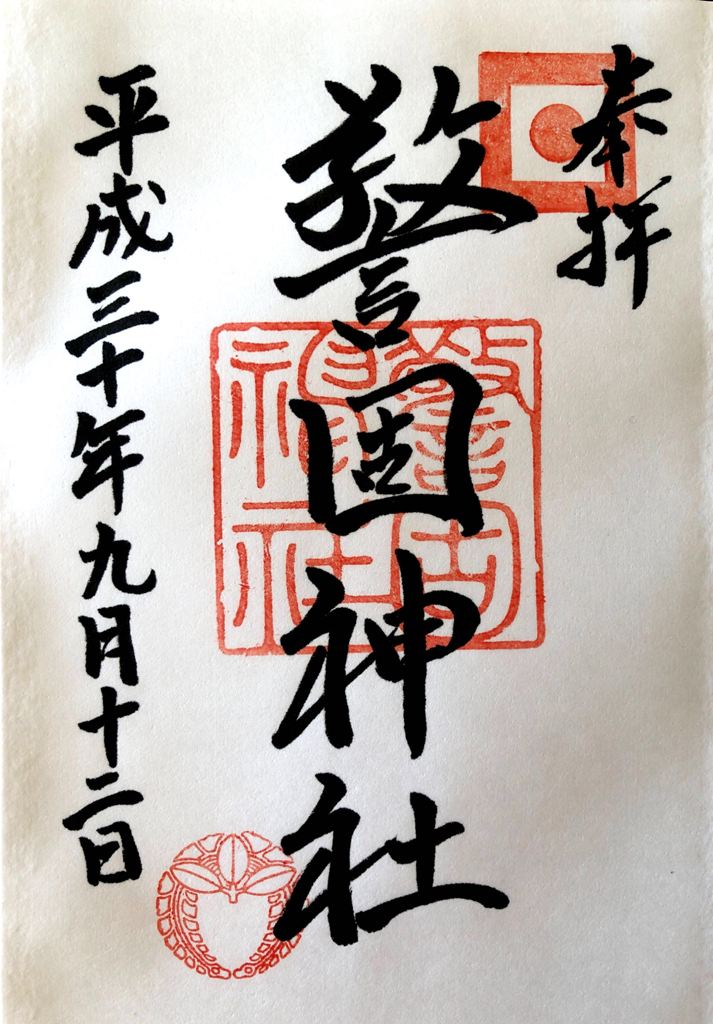 奉拝
警固神社
平成三十年九月十二日
警固
神社